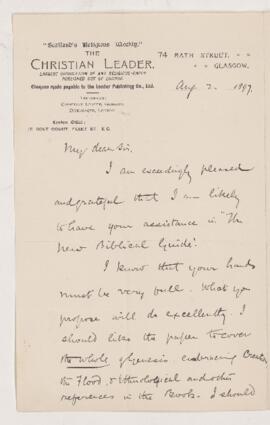 "Scotland's Religious Weekly."
THE
CHRISTIAN LEADER,
LARGEST CIRCULATION OF ANY RELIGIOUS PAPER
PUBLISHED OUT OF LONDON.
Cheques made payable to the Leader Publishing Co., Ltd.
74 BATH STREET,
GLASGOW,
Aug 2. 1897.
London Office:
My dear Sir,
I am exceedingly pleased
and grateful that I am likely
to have your assistance in "The
New Biblical Guide".
I know that your hands
must be very full. What you
propose will do excellently. I
should like the paper to cover
the whole of Genesis, embracing Creation
the Flood, & Ethnological and other
references in the Book. I should